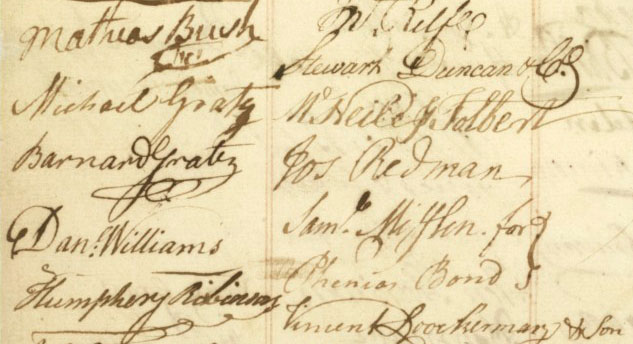 Mathias Bush
Michael Gratz
Barnard Gratz
Danl. Williams
Humphery Robinson
Stewart Duncan & Co.
McNeile & Tolbert
Jos Redman
Saml. Mifflin for
Phenias Bond
Vincent Loockerman & Son